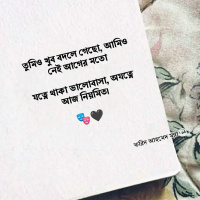 তুমিও খুব বদলে গেছো, আমিও
নেই আগের মতো
যত্নে থাকা ভালোবাসা, অযত্নে
আজ নিয়মিত৷
🎭🖤